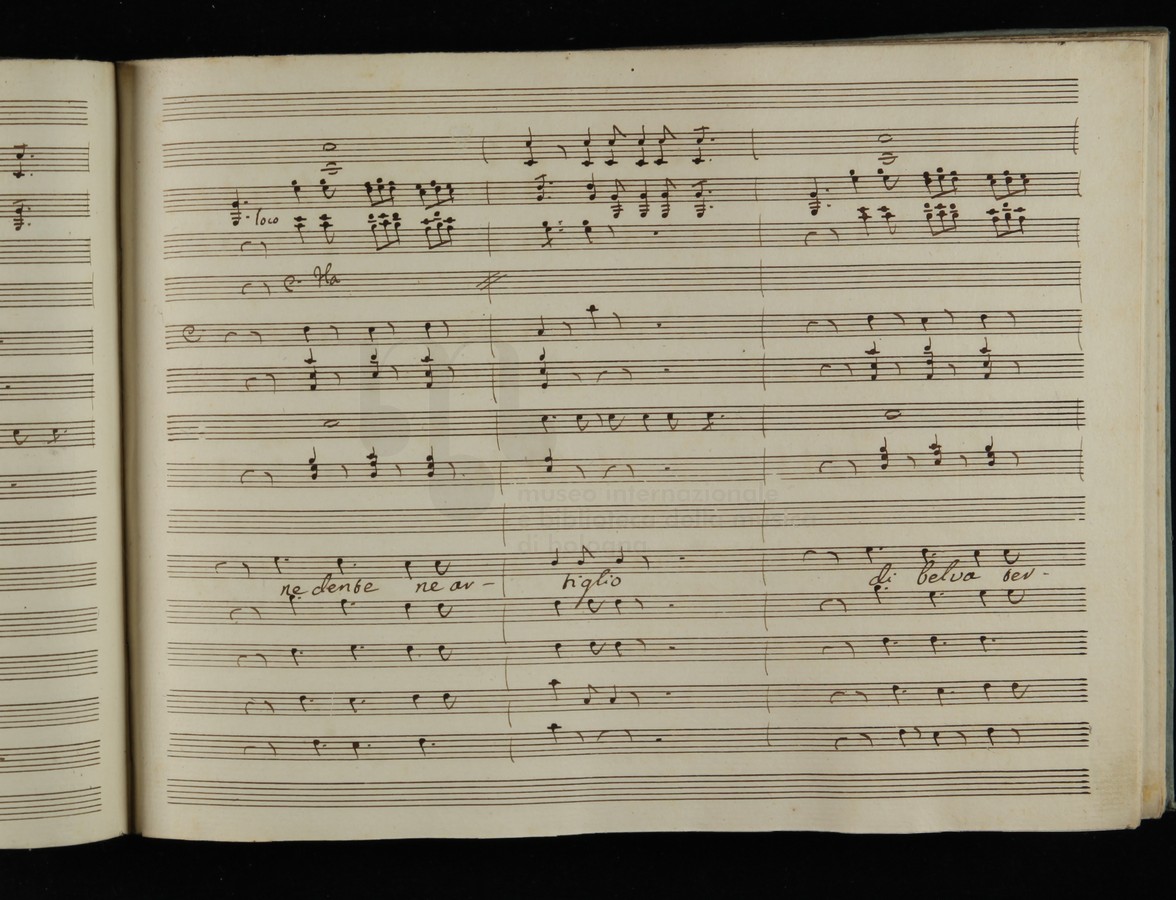 loco
museo internazionale
e biblioteca della musica
di bologna
ne dente ne ar - tiglio di belva ser -